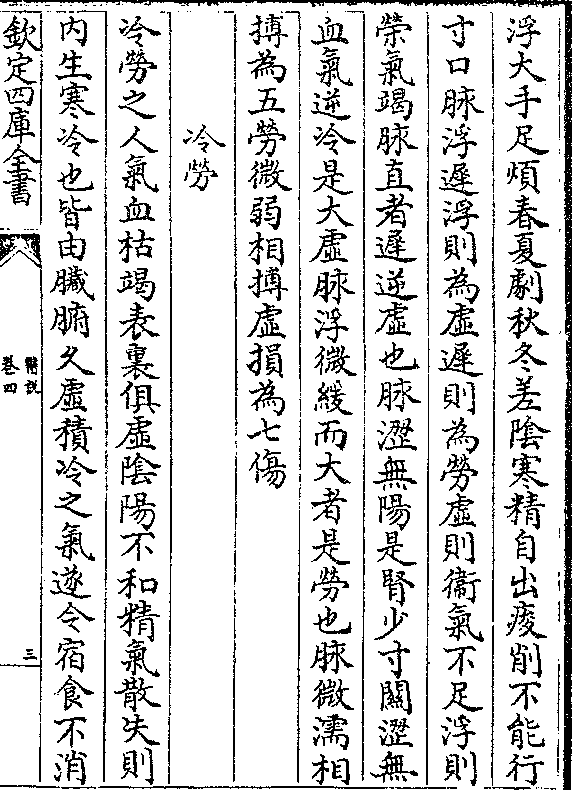 浮大手足煩春夏劇秋冬差陰寒精自出痠削不能行
寸口脉浮遲浮則為虛遲則為勞虛則衞氣不足浮則
榮氣竭脉直者遲逆虛也脉澀無陽是腎少寸關澀無
血氣逆冷是大虛脉浮微緩而大者是勞也脉微濡相
搏為五勞微弱相搏虛損為七傷
冷勞
冷勞之人氣血枯竭表裏俱虛陰陽不和精氣散失則
内生寒冷也皆由臓腑久虛積冷之氣遂令宿食不消
欽定四庫全書
醫説
卷四
三